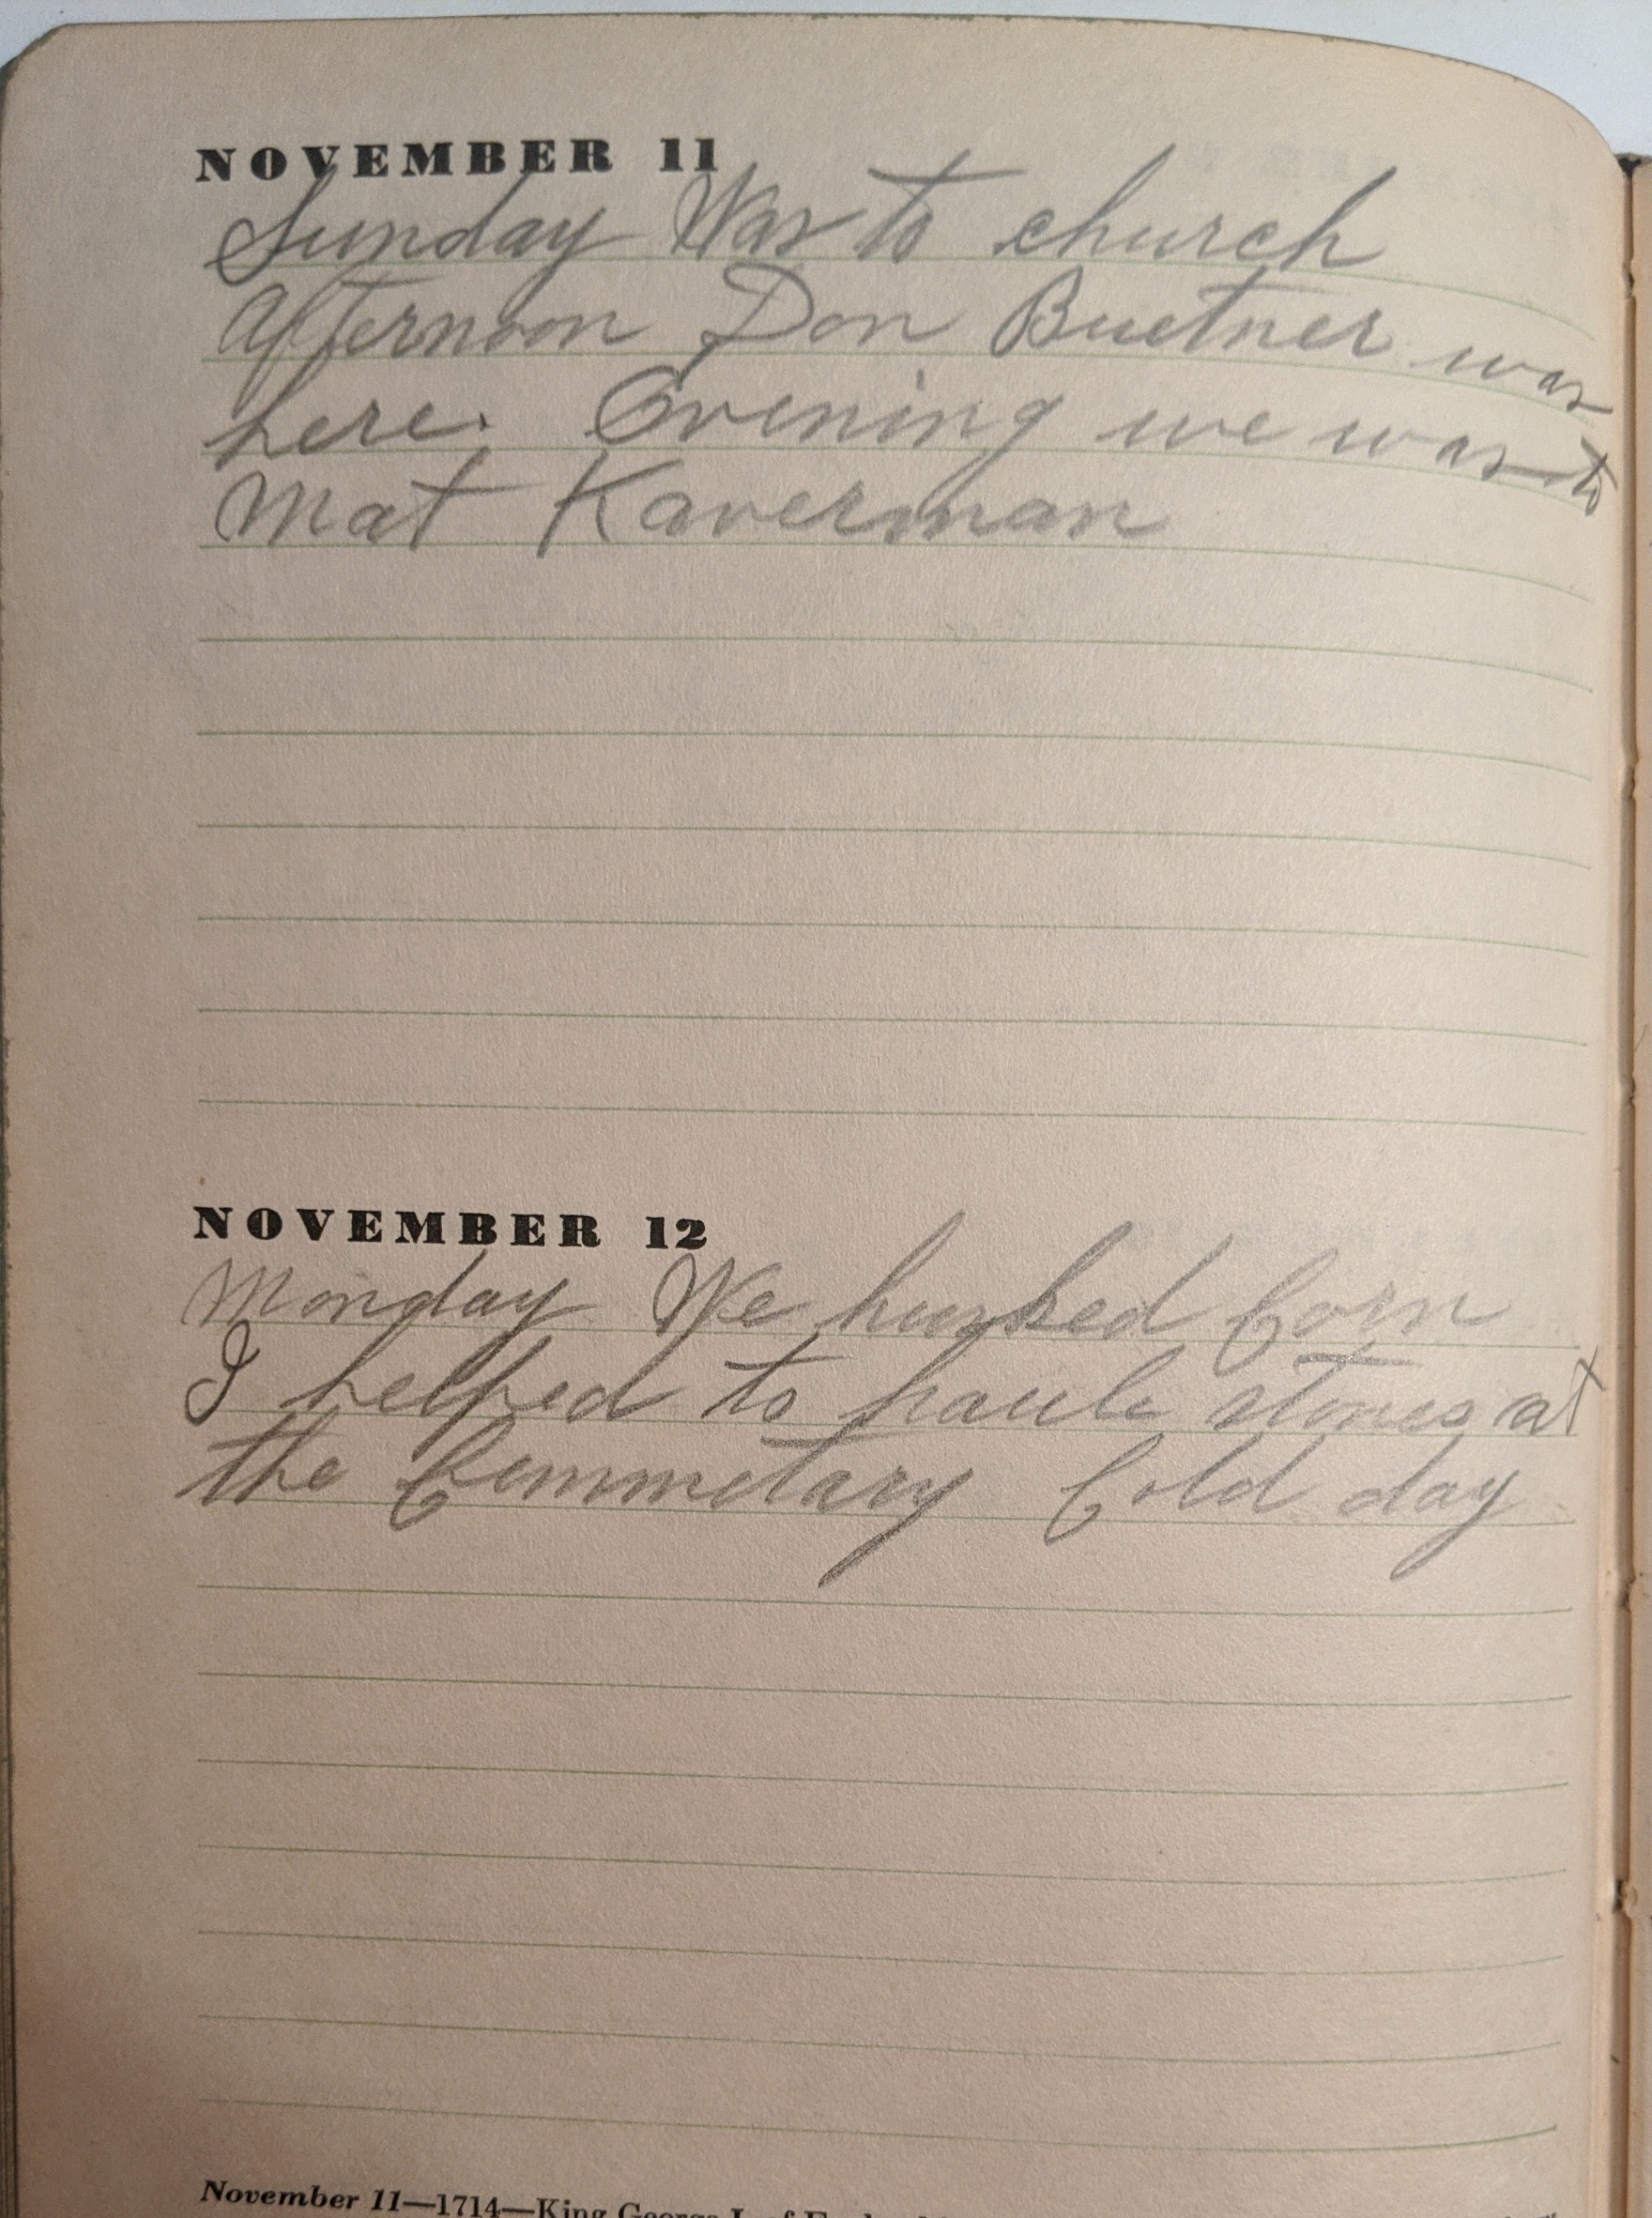 NOVEMBER 11
Sunday Was to church
Afternoon Don Buetner was
here. Evening we was to
Mat Kaverman
NOVEMBER 12
Monday We husked Corn
I helped to haule stones at
the Cemmetary Cold day
November 11—1714—King George I. of